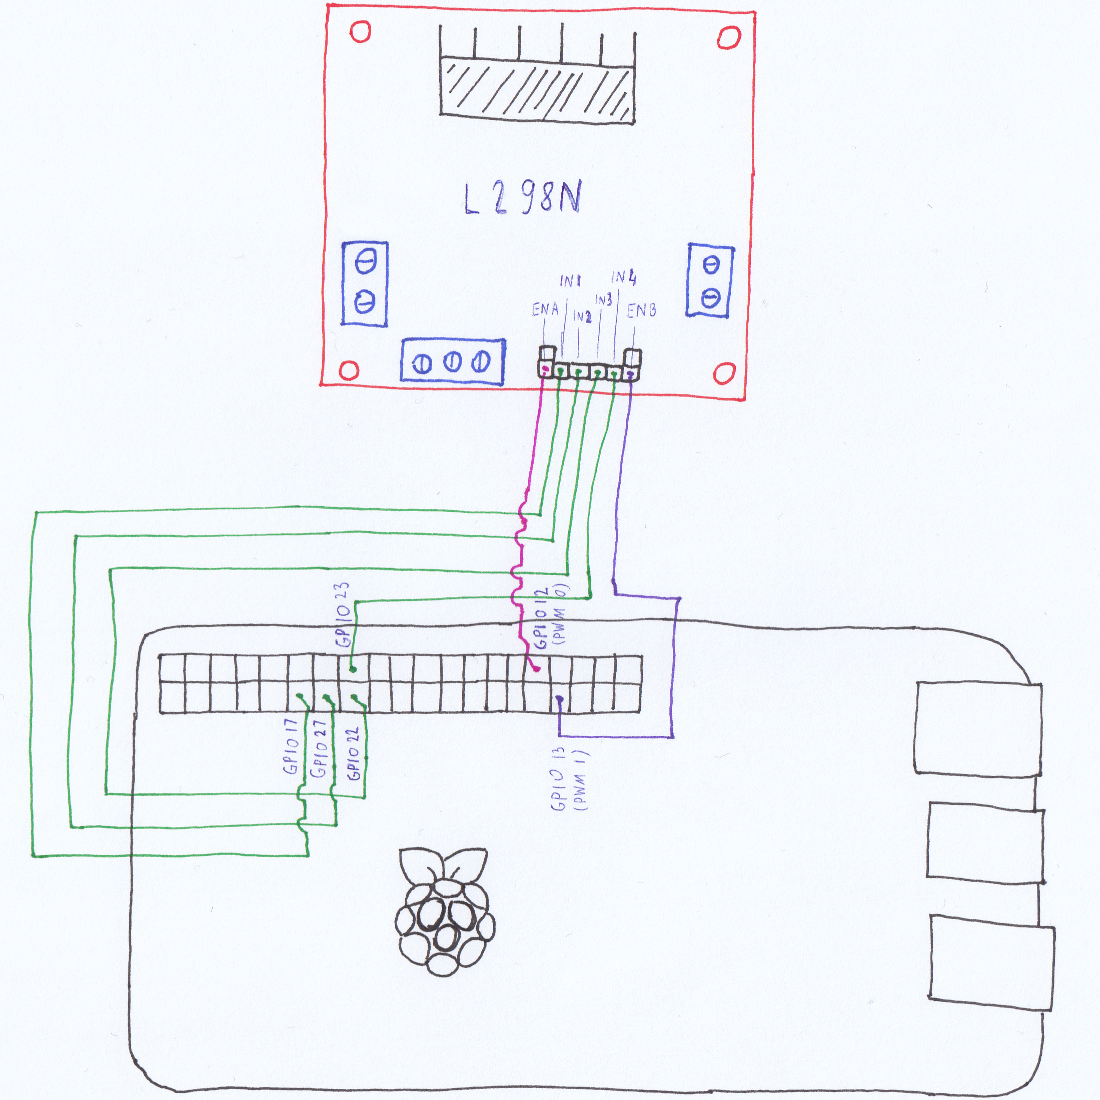 L298N
IN1
IN4
ENA
IN2
IN3
ENB
GPIO 23
GPIO 12
(PWM 0)
GPIO 17
GPIO 27
GPIO 22
GPIO 13
(PWM 1)